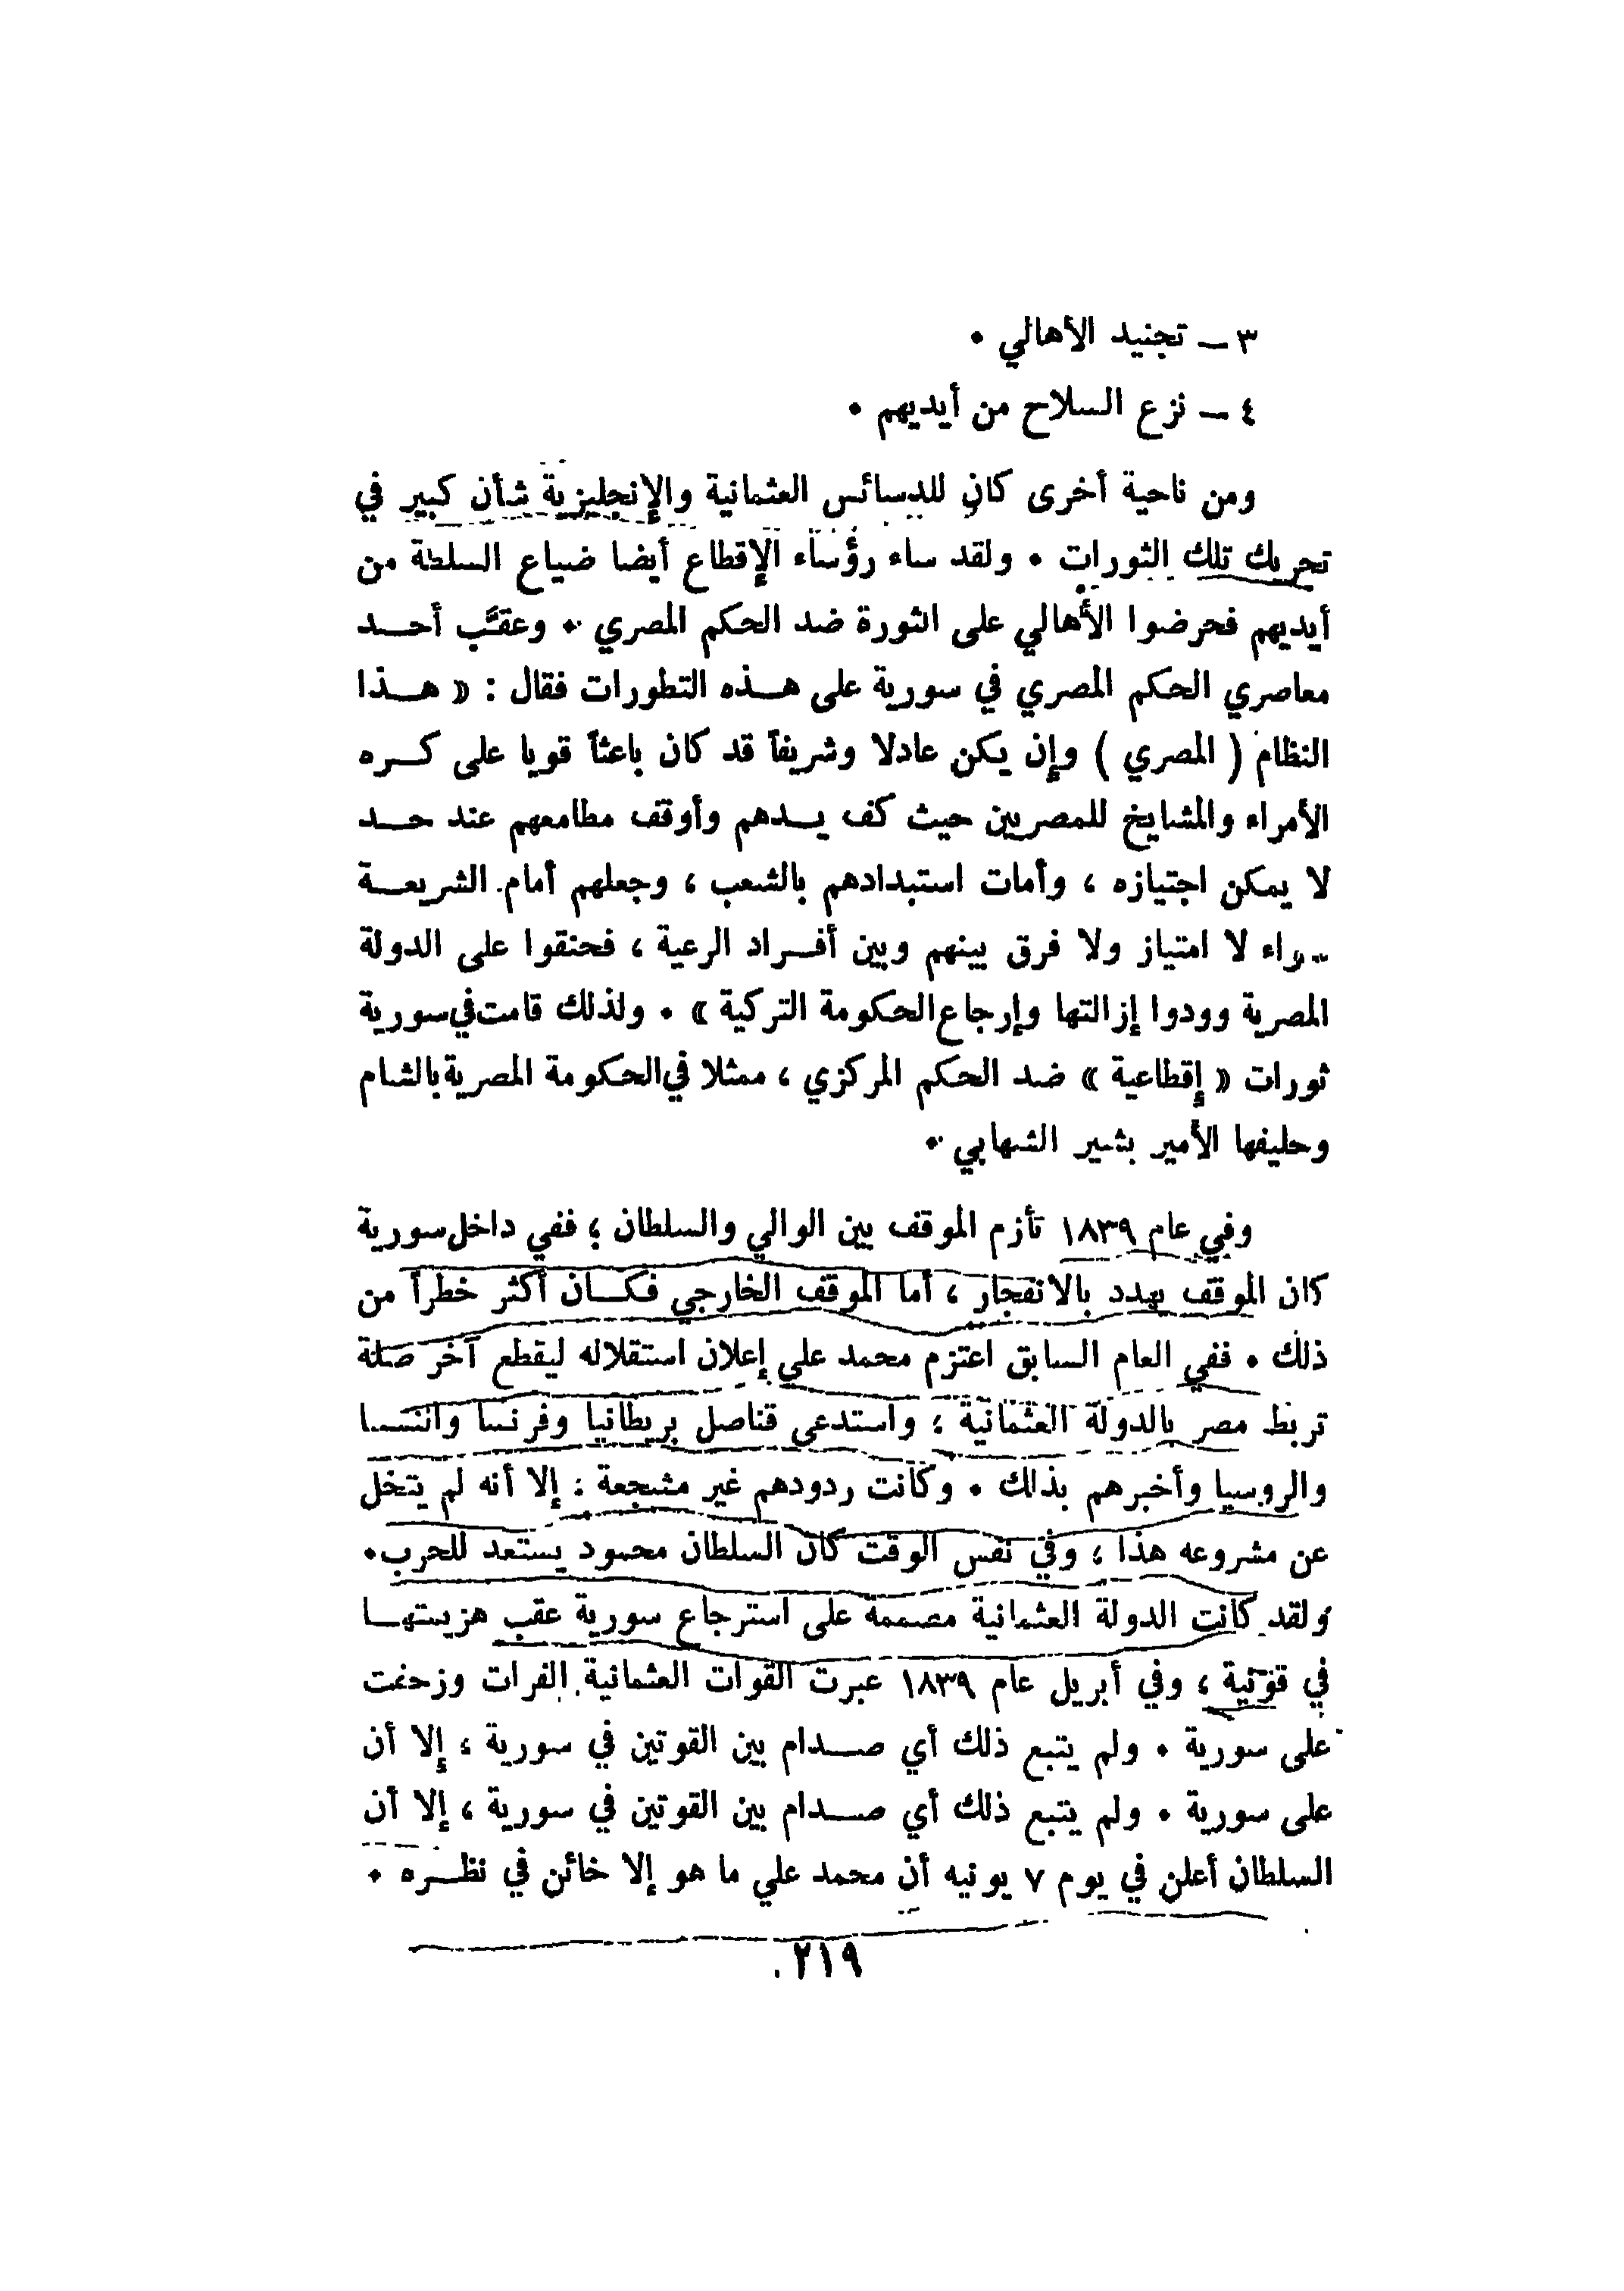 ٣ ــ تجنيد الأهالي ٠
٤ ــ نزع السلاح من أيديهم ٠
ومن ناحية أخرى كان للدسائس العثمانية والإنجليزية شأن كبير في
تحريك تلك الثورات ٠ ولقد ساء رؤساء الإقطاع أيضا ضياع السلطة من
أيديهم فحرضوا الأهالي على الثورة ضد الحكم المصري ٠ وعقَّب أحــد
معاصري الحكم المصري في سورية على هــذه التطورات فقال : « هــذا
النظام ( المصري ) وإن يكن عادلا وشريفاً قد كان باعثاً قويا على كــره
الأمراء والمشايخ للمصريين حيث كف يــدهم وأوقف مطامعهم عند حــد
لا يمكن اجتيازه ، وأمات استبدادهم بالشعب ، وجعلهم أمام الشريعــة
سواء لا امتياز ولا فرق بينهم وبين أفــراد الرعية ، فحنقوا على الدولة
المصرية وودوا إزالتها وإرجاع الحكومة التركية » ٠ ولذلك قامت في سورية
ثورات « إقطاعية » ضد الحكم المركزي ، ممثلا في الحكومة المصرية بالشام
وحليفها الأمير بشير الشهابي ٠
وفي عام ١٨٣٩ تأزم الموقف بين الوالي والسلطان ؛ ففي داخل سورية
كان الموقف يهدد بالانفجار ، أما الموقف الخارجي فكــان أكثر خطراً من
ذلك ٠ ففي العام السابق اعتزم محمد علي إعلان استقلاله ليقطع آخر صلة
تربط مصر بالدولة العثمانية ؛ واستدعى قناصل بريطانيا وفرنسا والنمســا
والروسيا وأخبرهم بذلك ٠ وكانت ردودهم غير مشجعة ؛ إلا أنه لم يتخل
عن مشروعه هذا ؛ وفي نفس الوقت كان السلطان محمود يستعد للحرب٠
ولقد كانت الدولة العثمانية مصممة على استرجاع سورية عقب هزيمتهــا
في قونية ، وفي أبريل عام ١٨٣٩ عبرت القوات العثمانية الفرات وزحفت
على سورية ٠ ولم يتبع ذلك أي صــدام بين القوتين في سورية ، إلا أن
على سورية ٠ ولم يتبع ذلك أي صــدام بين القوتين في سورية ، إلا أن
السلطان أعلن في يوم ٧ يونيه أن محمد علي ما هو إلا خائن في نظــره ٠
٢١٩